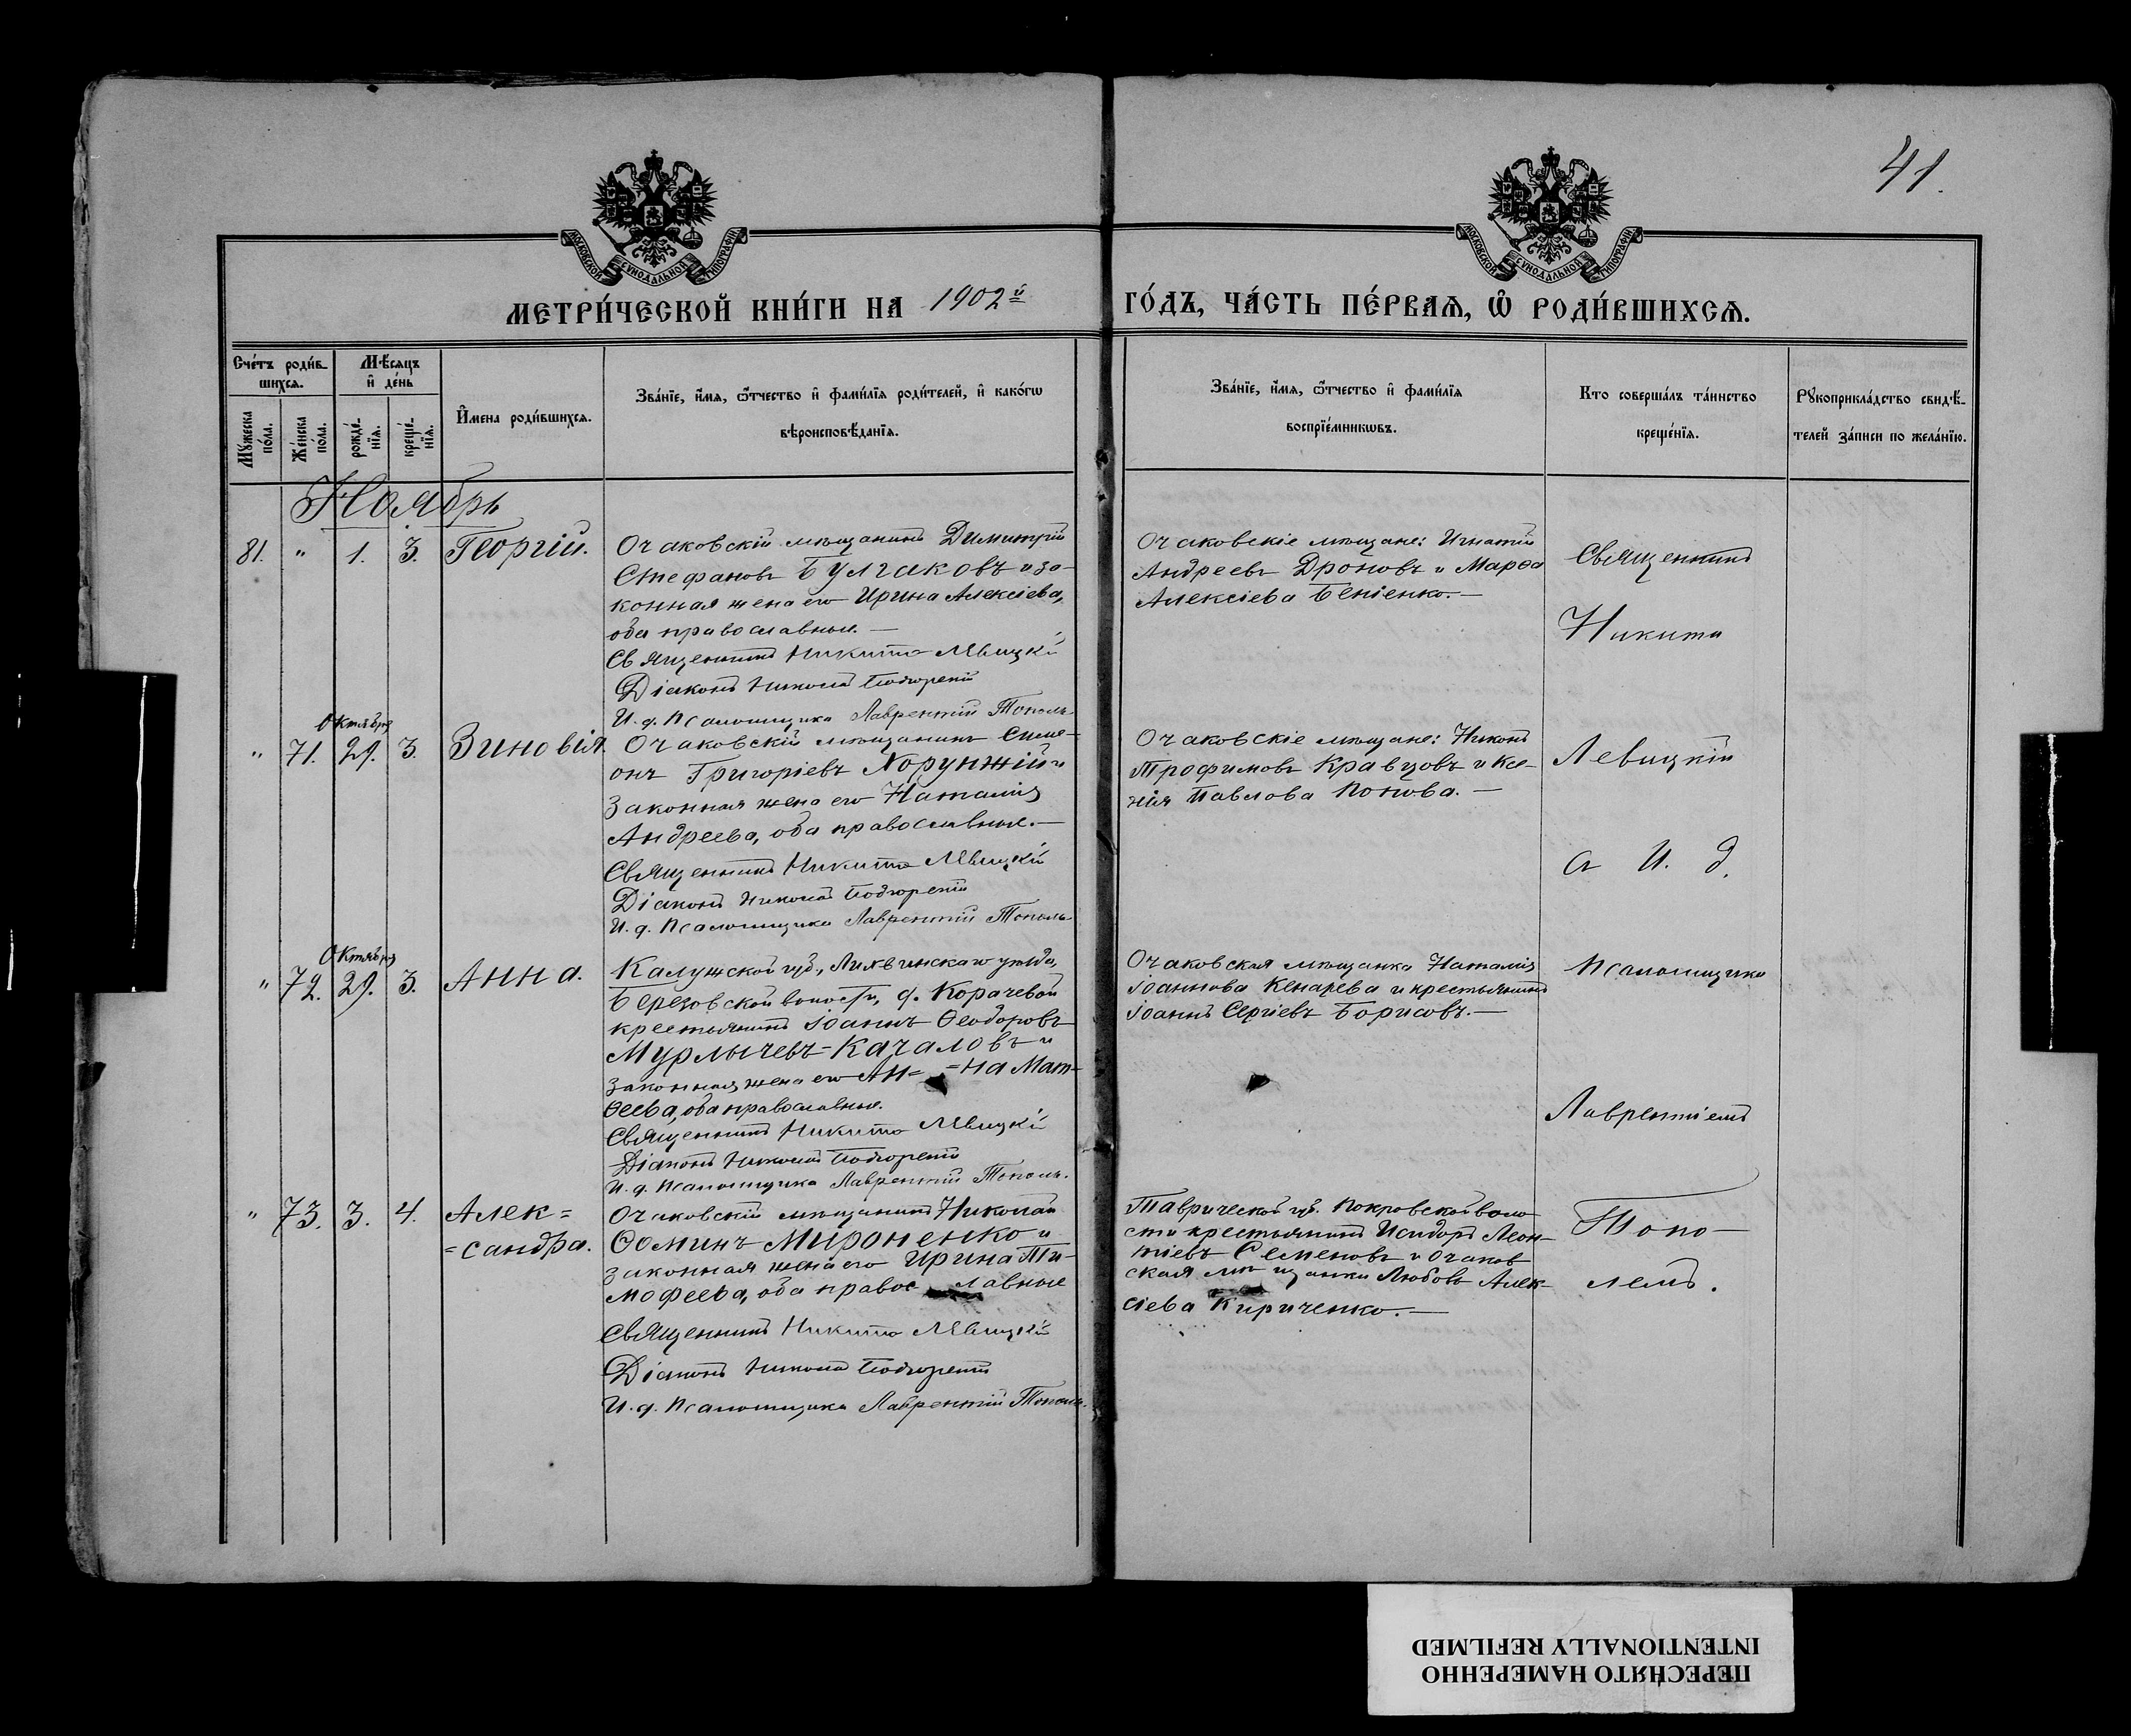 41.
МОСКОВСКОЙ СѴНОДАЛЬНОЙ ТИПОГРАФІИ
МОСКОВСКОЙ СѴНОДАЛЬНОЙ ТИПОГРАФІИ
МЕТРИ́ЧЕСКОЙ КНИ́ГИ НА 1902й ГО́ДЪ, ЧА́СТЬ ПЕ́РВАѦ, Ѡ҆ РОДИ́ВШИХСѦ.
Сче́тъ роди́в-
шихсѧ.
Мѣ́сѧцъ
и҆ де́нь
Мꙋ́жеска
по́ла.
Же́нска
по́ла.
рожде́-
нїѧ.
креще́-
нїѧ.
И҆мена роди́вшихсѧ.
Зва́нїе, и҆́мѧ, ѻ҆́тчество и҆ фами́лїѧ роди́телей, и҆ како́гѡ
вѣроисповѣ́данїѧ.
Зва́нїе, и҆́мѧ, ѻ҆́тчество и҆ фами́лїѧ
воспрїе́мникѡвъ.
Кто соверша́лъ та́инство
креще́нїѧ.
Рꙋкоприкла́дство свидѣ́-
телей за́писи по жела́нїю.
Ноябрь
81. " 1. 3. Георгій.
Очаковскій мѣщанинъ Димитрій
Стефановъ Булгаковъ и за-
конная жена его Ирина Алексіева,
оба православные.—
Священникъ Никита Левицкій
Діаконъ Николай Подгорскій
И. д. Псаломщика Лаврентій Тополь
Очаковскіе мѣщане: Игнатій
Андреевъ Дроновъ и Марѳа
Алексіева Беніенко.—
Священникъ
Никита
Октября
" 71. 29. 3. Зиновія.
Очаковскій мѣщанинъ Симе-
онъ Григоріевъ Хорунжій и
законная жена его Наталія
Андреева, оба православные.—
Священникъ Никита Левицкій
Діаконъ Николай Подгорскій
И. д. Псаломщика Лаврентій Тополь
Очаковскіе мѣщане: Никонъ
Трофимовъ Кравцовъ и Ксе-
нія Павлова Попова.—
Левицкій
съ И. д.
Октября
" 72. 29. 3. Анна.
Калужской губ., Лихвинскаго уѣзда,
Березовской волости, д. Корачевой
крестьянинъ Іоаннъ Ѳеодоровъ
Мурлычевъ-Качаловъ и
законная жена его Ан= =на Мат-
ѳеева, оба православные.
Священникъ Никита Левицкій
Діаконъ Николай Подгорскій
И. д. Псаломщика Лаврентій Тополь.
Очаковская мѣщанка Наталія
Іоаннова Кенарева и крестьянинъ
Іоаннъ Сергіевъ Борисовъ.—
Псаломщика
Лаврентіемъ
" 73. 3. 4. Алек=
=сандра.
Очаковскій мѣщанинъ Николай
Ѳоминъ Мироненко и
законная жена его Ирина Ти-
мофеева, оба правос лавные
Священникъ Никита Левицкій
Діаконъ Николай Подгорскій
И. д. Псаломщика Лаврентій Тополь.
Таврической губ. Покровской воло
сти крестьянинъ Исидоръ Леон-
тіевъ Семеновъ и Очаков
ская мѣ щанка Любовь Алек-
сіева Кириченко.—
Топо-
лемъ.
ПЕРЕСНЯТО НАМЕРЕННО
INTENTIONALLY REFILMED